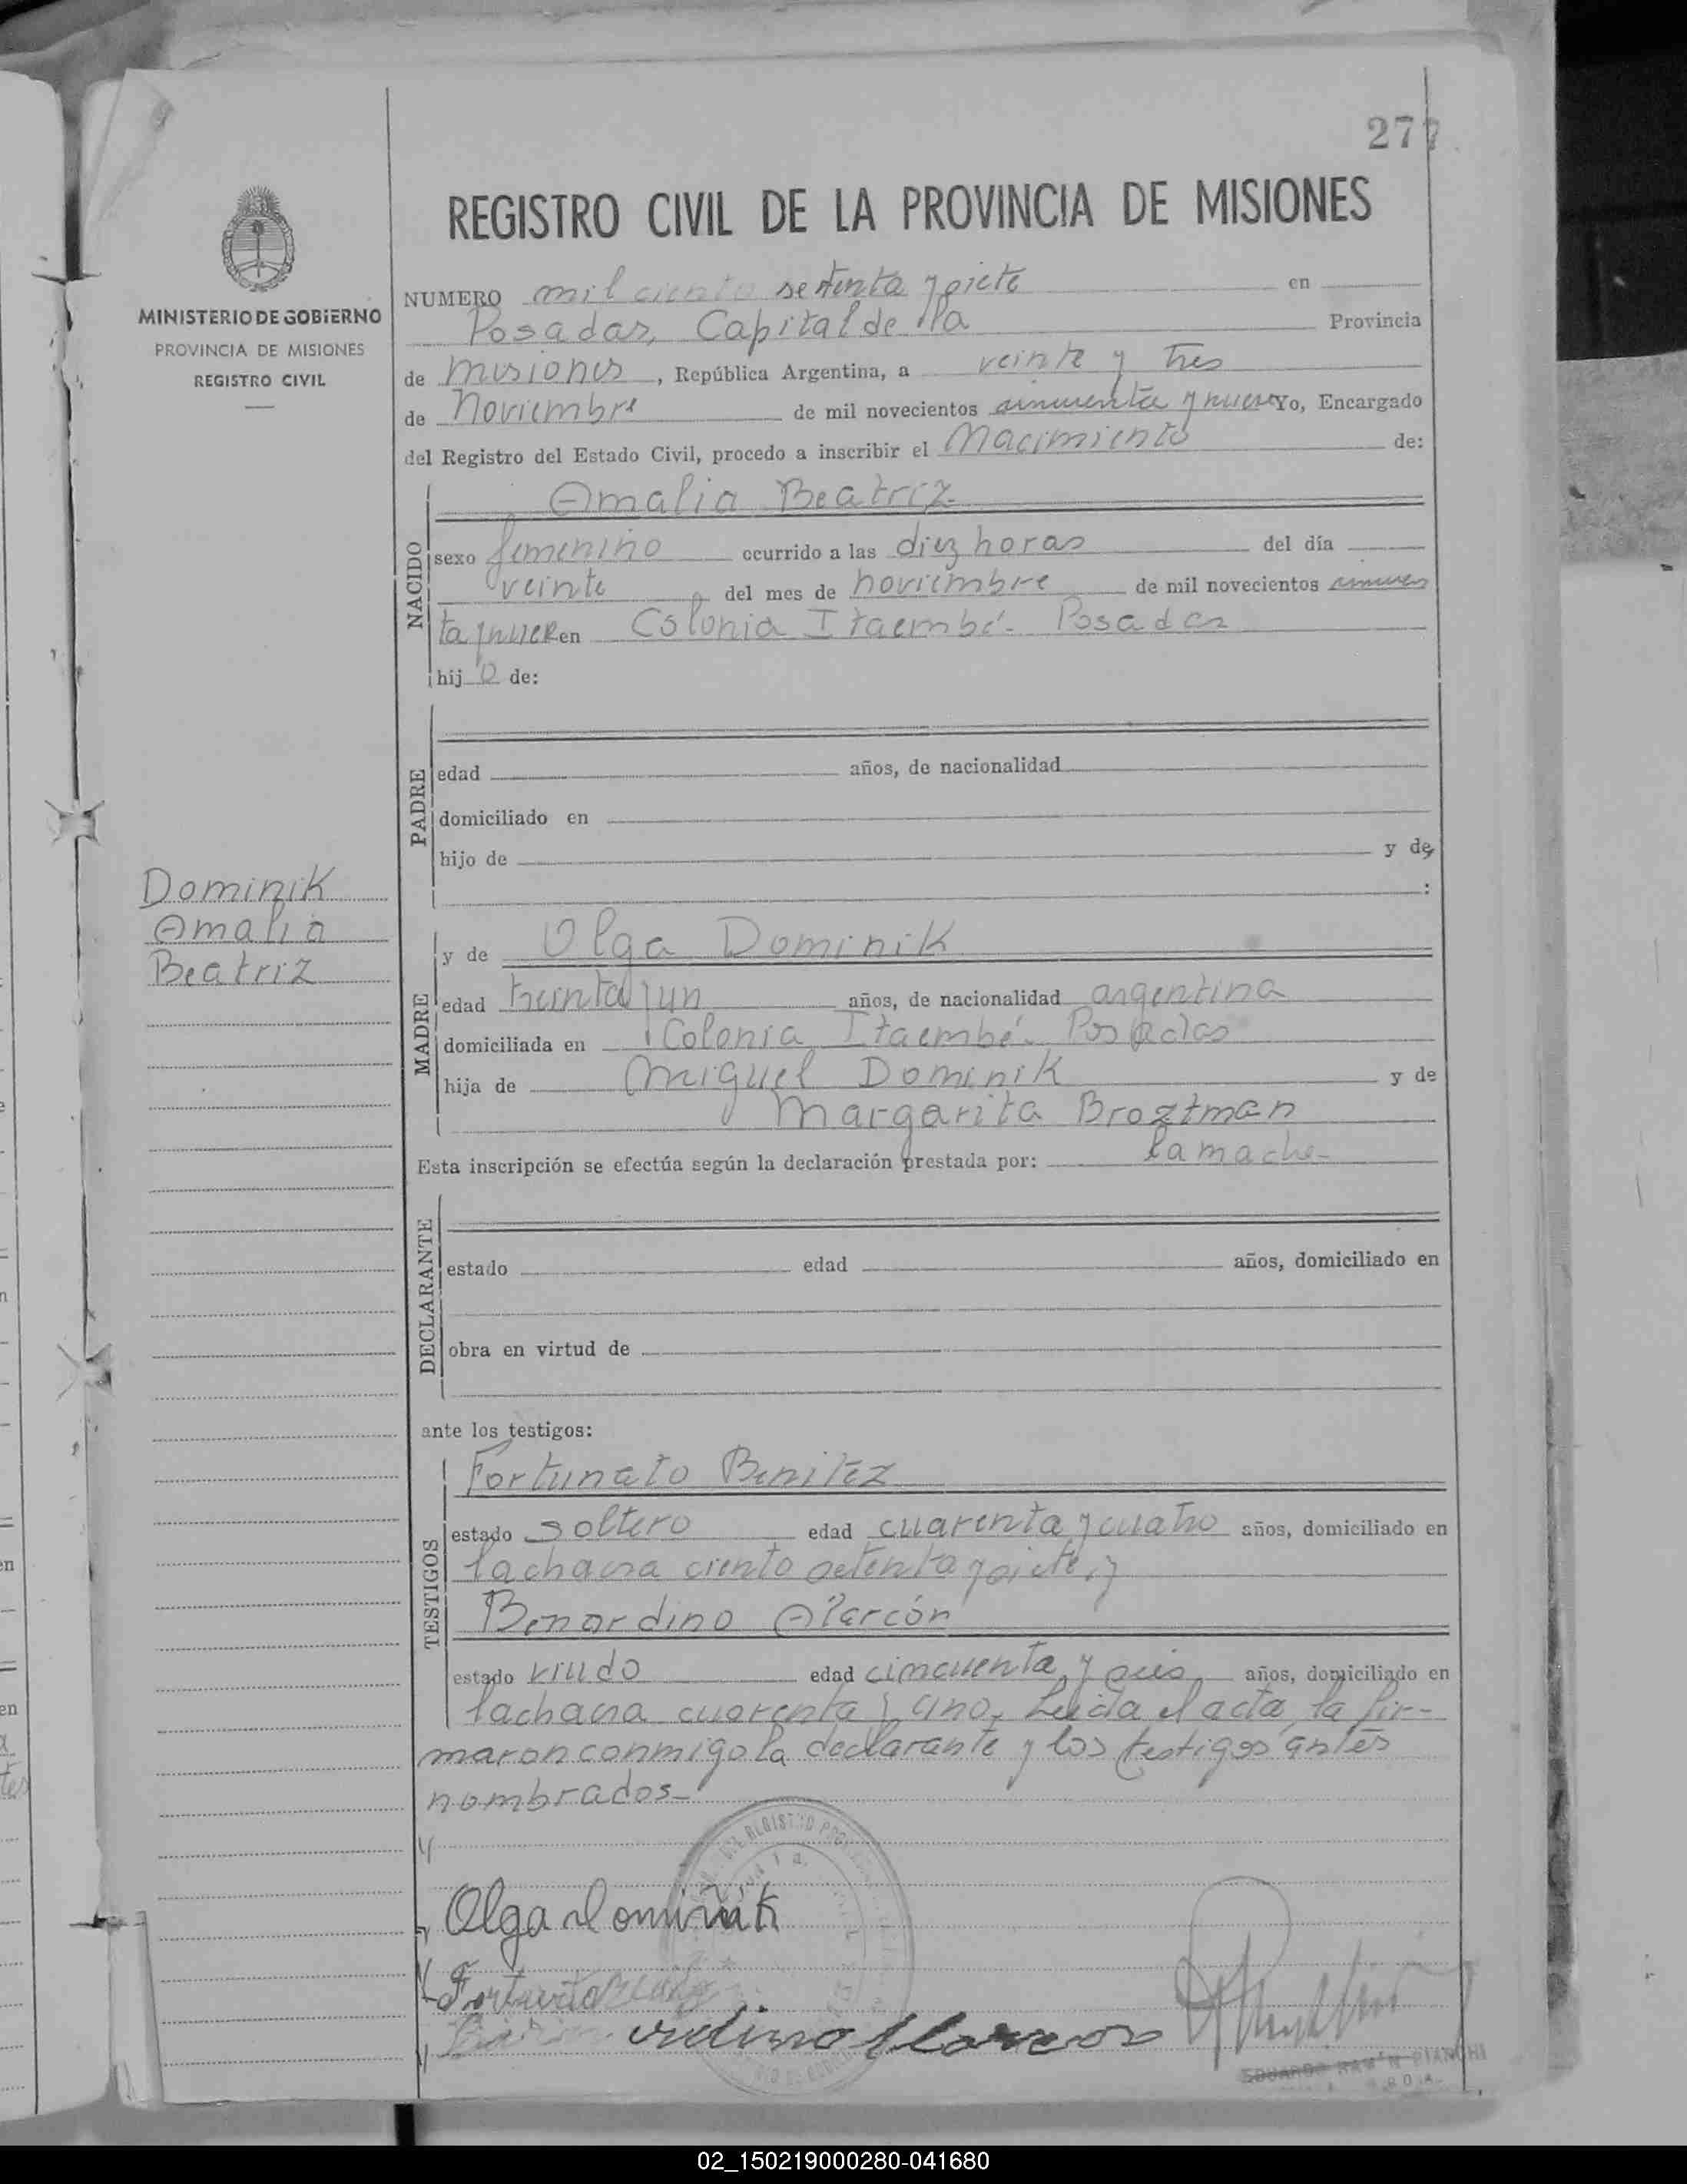 277
REGISTRO CIVIL DE LA PROVINCIA DE MISIONES
MINISTERIO DE GOBIERNO
PROVINCIA DE MISIONES
REGISTRO CIVIL
NUMERO mil ciento setenta y siete en
Posadas, Capital de la Provincia
de Misiones, República Argentina, a veinte y tres
de Noviembre de mil novecientos cincuenta y nueve Yo, Encargado
del Registro del Estado Civil, procedo a inscribir el Nacimiento de:
NACIDO
Amalia Beatriz
sexo femenino ocurrido a las diez horas del día
veinte del mes de noviembre de mil novecientos cincuen
ta y nueve en Colonia Itaembé - Posadas
hij a de:
PADRE
edad años, de nacionalidad
domiciliado en
hijo de y de
:
Dominik
Amalia
Beatriz
MADRE
y de Olga Dominik
edad treinta y un años, de nacionalidad argentina
domiciliada en Colonia Itaembé - Posadas
hija de Miguel Dominik y de
Margarita Broztman
Esta inscripción se efectúa según la declaración prestada por: la madre -
DECLARANTE
estado edad años, domiciliado en
obra en virtud de
ante los testigos:
TESTIGOS
Fortunato Benitez
estado soltero edad cuarenta y cuatro años, domiciliado en
la chacra ciento setenta y siete, y
Bernardino Alarcón
estado viudo edad cincuenta y seis años, domiciliado en
la chacra cuarenta y uno. Leida el acta, la fir-
maron conmigo la declarante y los testigos antes
nombrados -
Olga Dominik
Fortunato
Bernardino Alarcon
EDUARDO RAMON BIANCHI
02_150219000280-041680